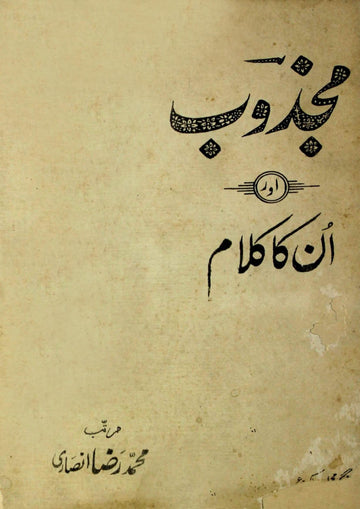 مجذوب
اور
اُن کا کلام
مرتب
محمد رضا انصاری